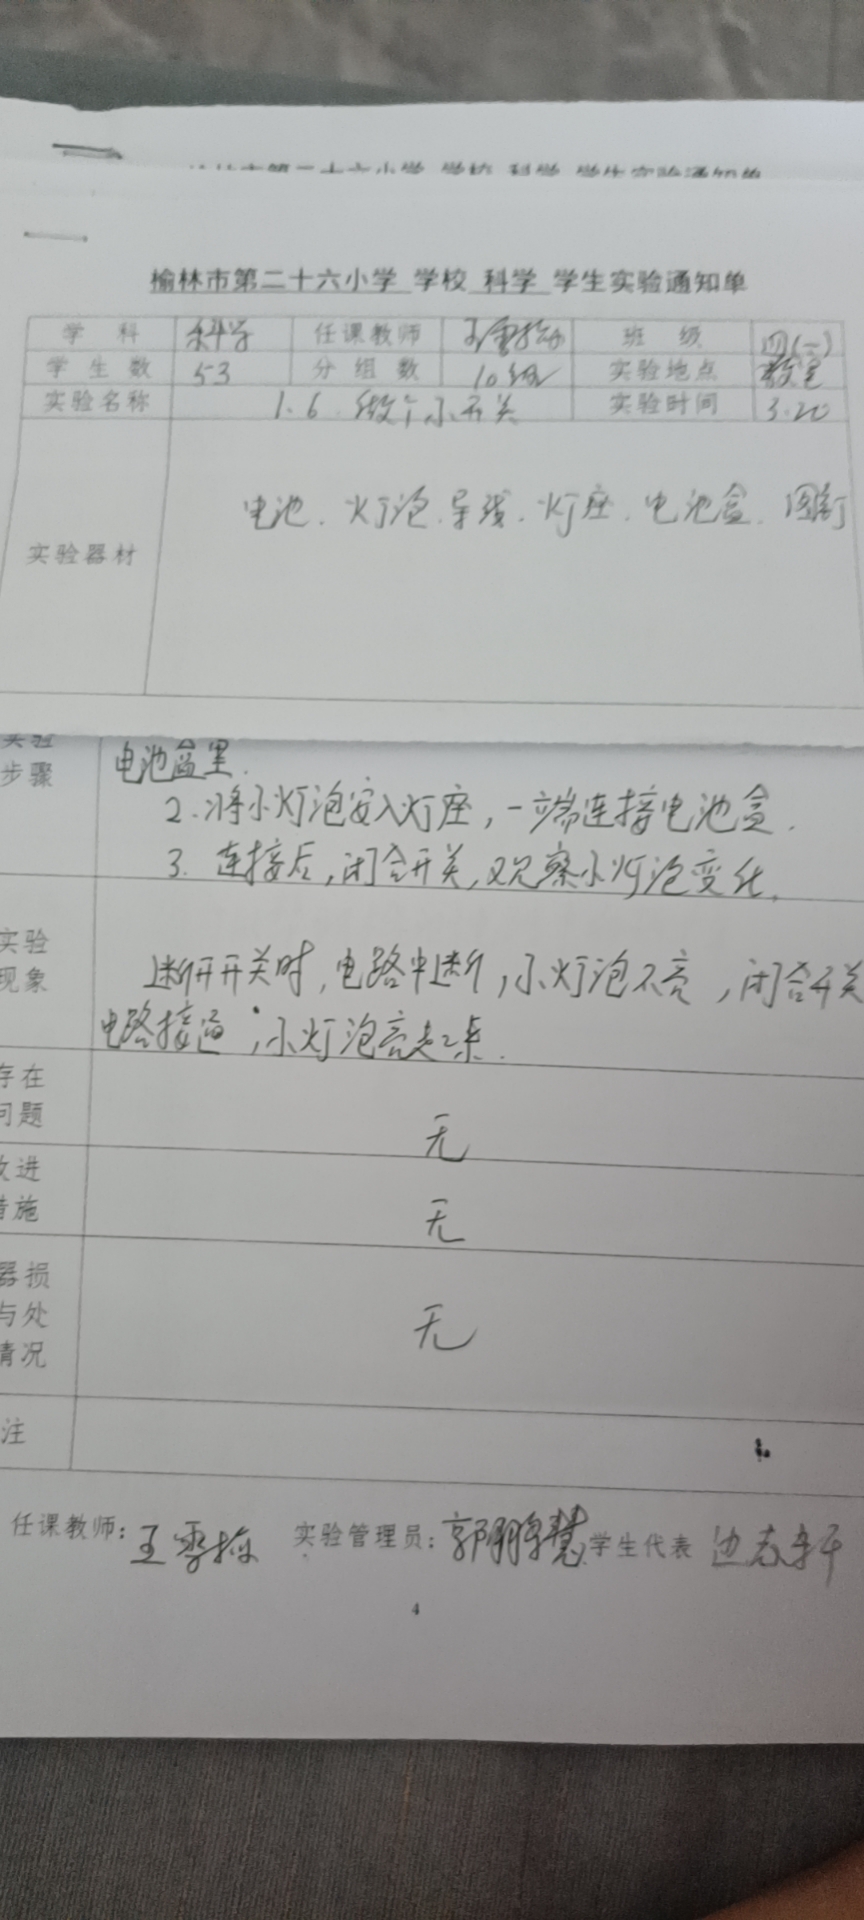 榆林市第二十六小学 学校 科学 学生实验通知单
榆林市第二十六小学 学校 科学 学生实验通知单
学科 科学 任课教师 王雪梅 班级 四(一)
学生数 53 分组数 10组 实验地点 教室
实验名称 1.6.做个小开关 实验时间 3.20
实验器材 电池.灯泡.导线.灯座.电池盒.图钉
实验
步骤
电池盒里.
2.将小灯泡安入灯座,一端连接电池盒.
3.连接后,闭合开关,观察小灯泡变化.
实验
现象
断开开关时,电路中断,小灯泡不亮,闭合开关
电路接通,小灯泡亮起来.
存在
问题
无
改进
措施
无
器损
与处
情况
无
注
任课教师:王雪梅 实验管理员:郭鹏慧 学生代表 边志轩
4